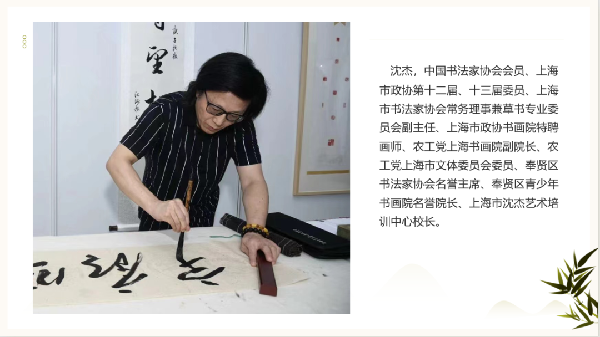 沈杰，中国书法家协会会员、上海
市政协第十二届、十三届委员、上海
市书法家协会常务理事兼草书专业委
员会副主任、上海市政协书画院特聘
画师、农工党上海书画院副院长、农
工党上海市文体委员会委员、奉贤区
书法家协会名誉主席、奉贤区青少年
书画院名誉院长、上海市沈杰艺术培
训中心校长。